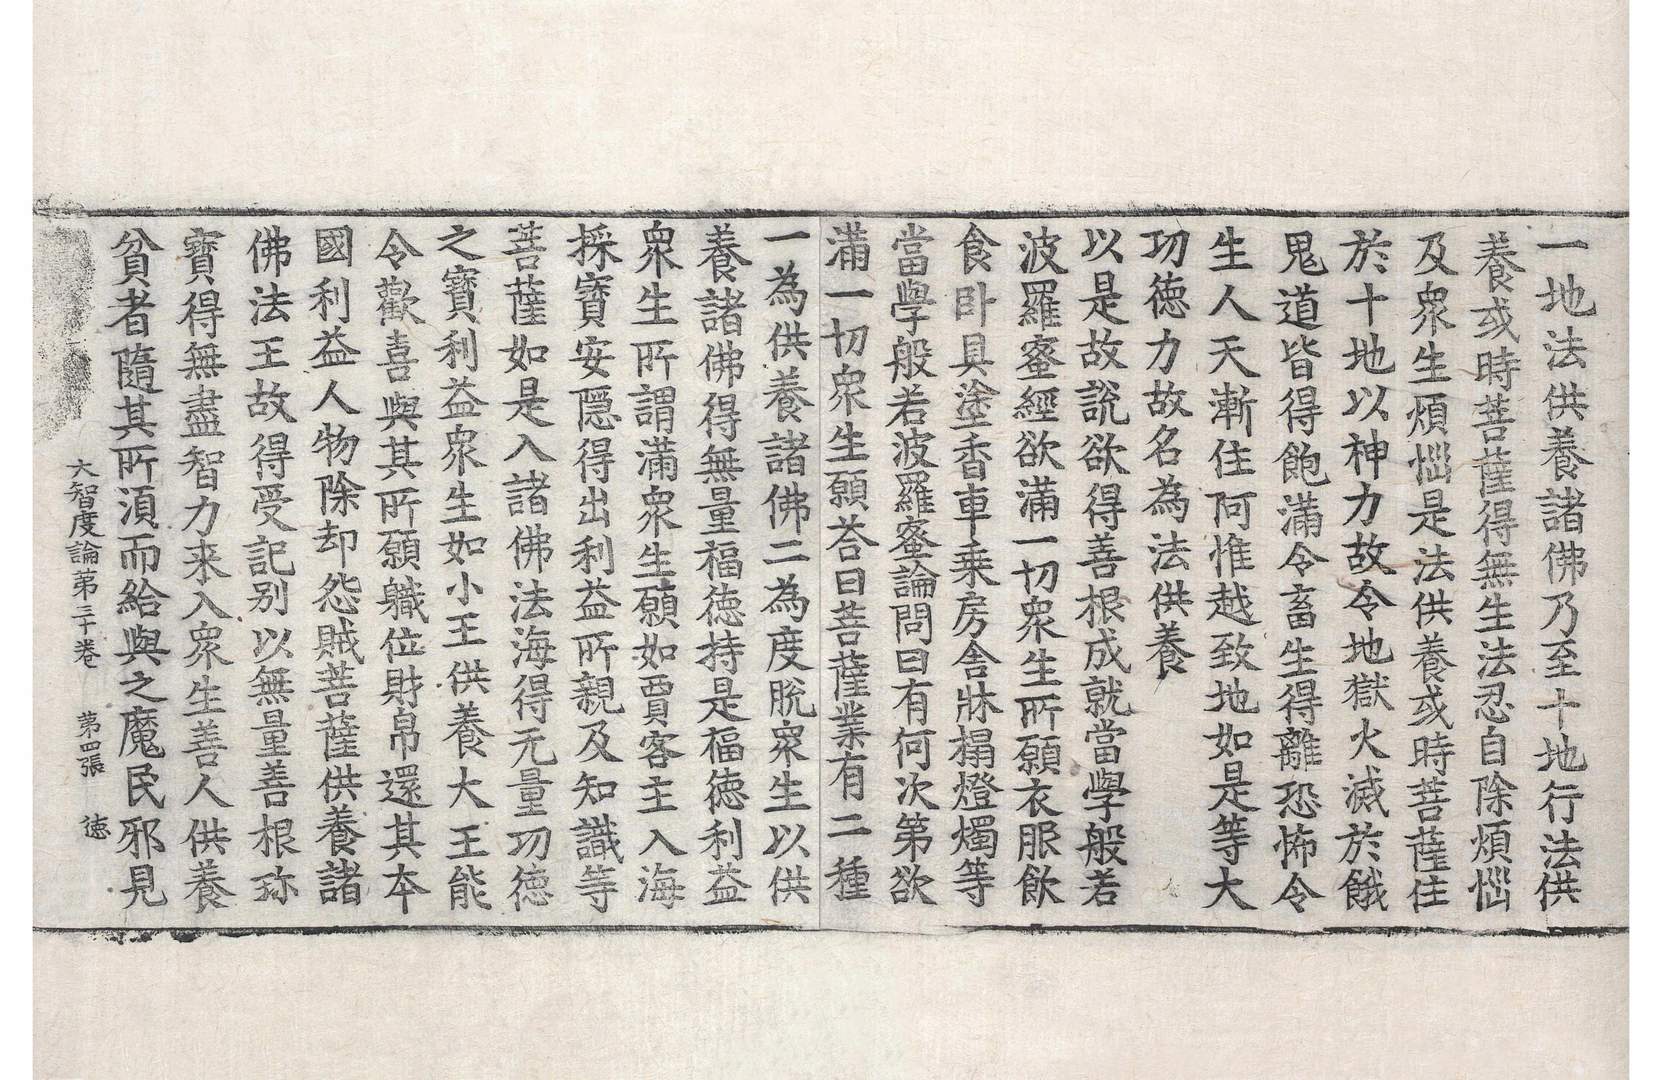 一地法供養諸佛乃至十地行法供
養或時菩薩得無生法忍自除煩惱
及衆生煩惱是法供養或時菩薩住
於十地以神力故令地獄火滅於餓
鬼道皆得飽滿令畜生得離恐怖令
生人天漸住阿惟越致地如是等大
功德力故名為法供養
以是故說欲得善根成就當學般若
波羅蜜經欲滿一切衆生所願衣服飲
食卧具塗香車乘房舍牀榻燈燭等
當學般若波羅蜜論問曰有何次第欲
滿一切衆生願荅曰菩薩業有二種
一為供養諸佛二為度脫衆生以供
養諸佛得無量福德持是福德利益
衆生所謂滿衆生願如賈客主入海
採寶安隱得出利益所親及知識等
菩薩如是入諸佛法海得无量功德
之寶利益衆生如小王供養大王能
令歡喜與其所願職位財帛還其本
國利益人物除却怨賊菩薩供養諸
佛法王故得受記別以無量善根珎
寶得無盡智力来入衆生善人供養
貧者隨其所湏而給與之魔民邪見
大智度論第三十卷 第四張 德